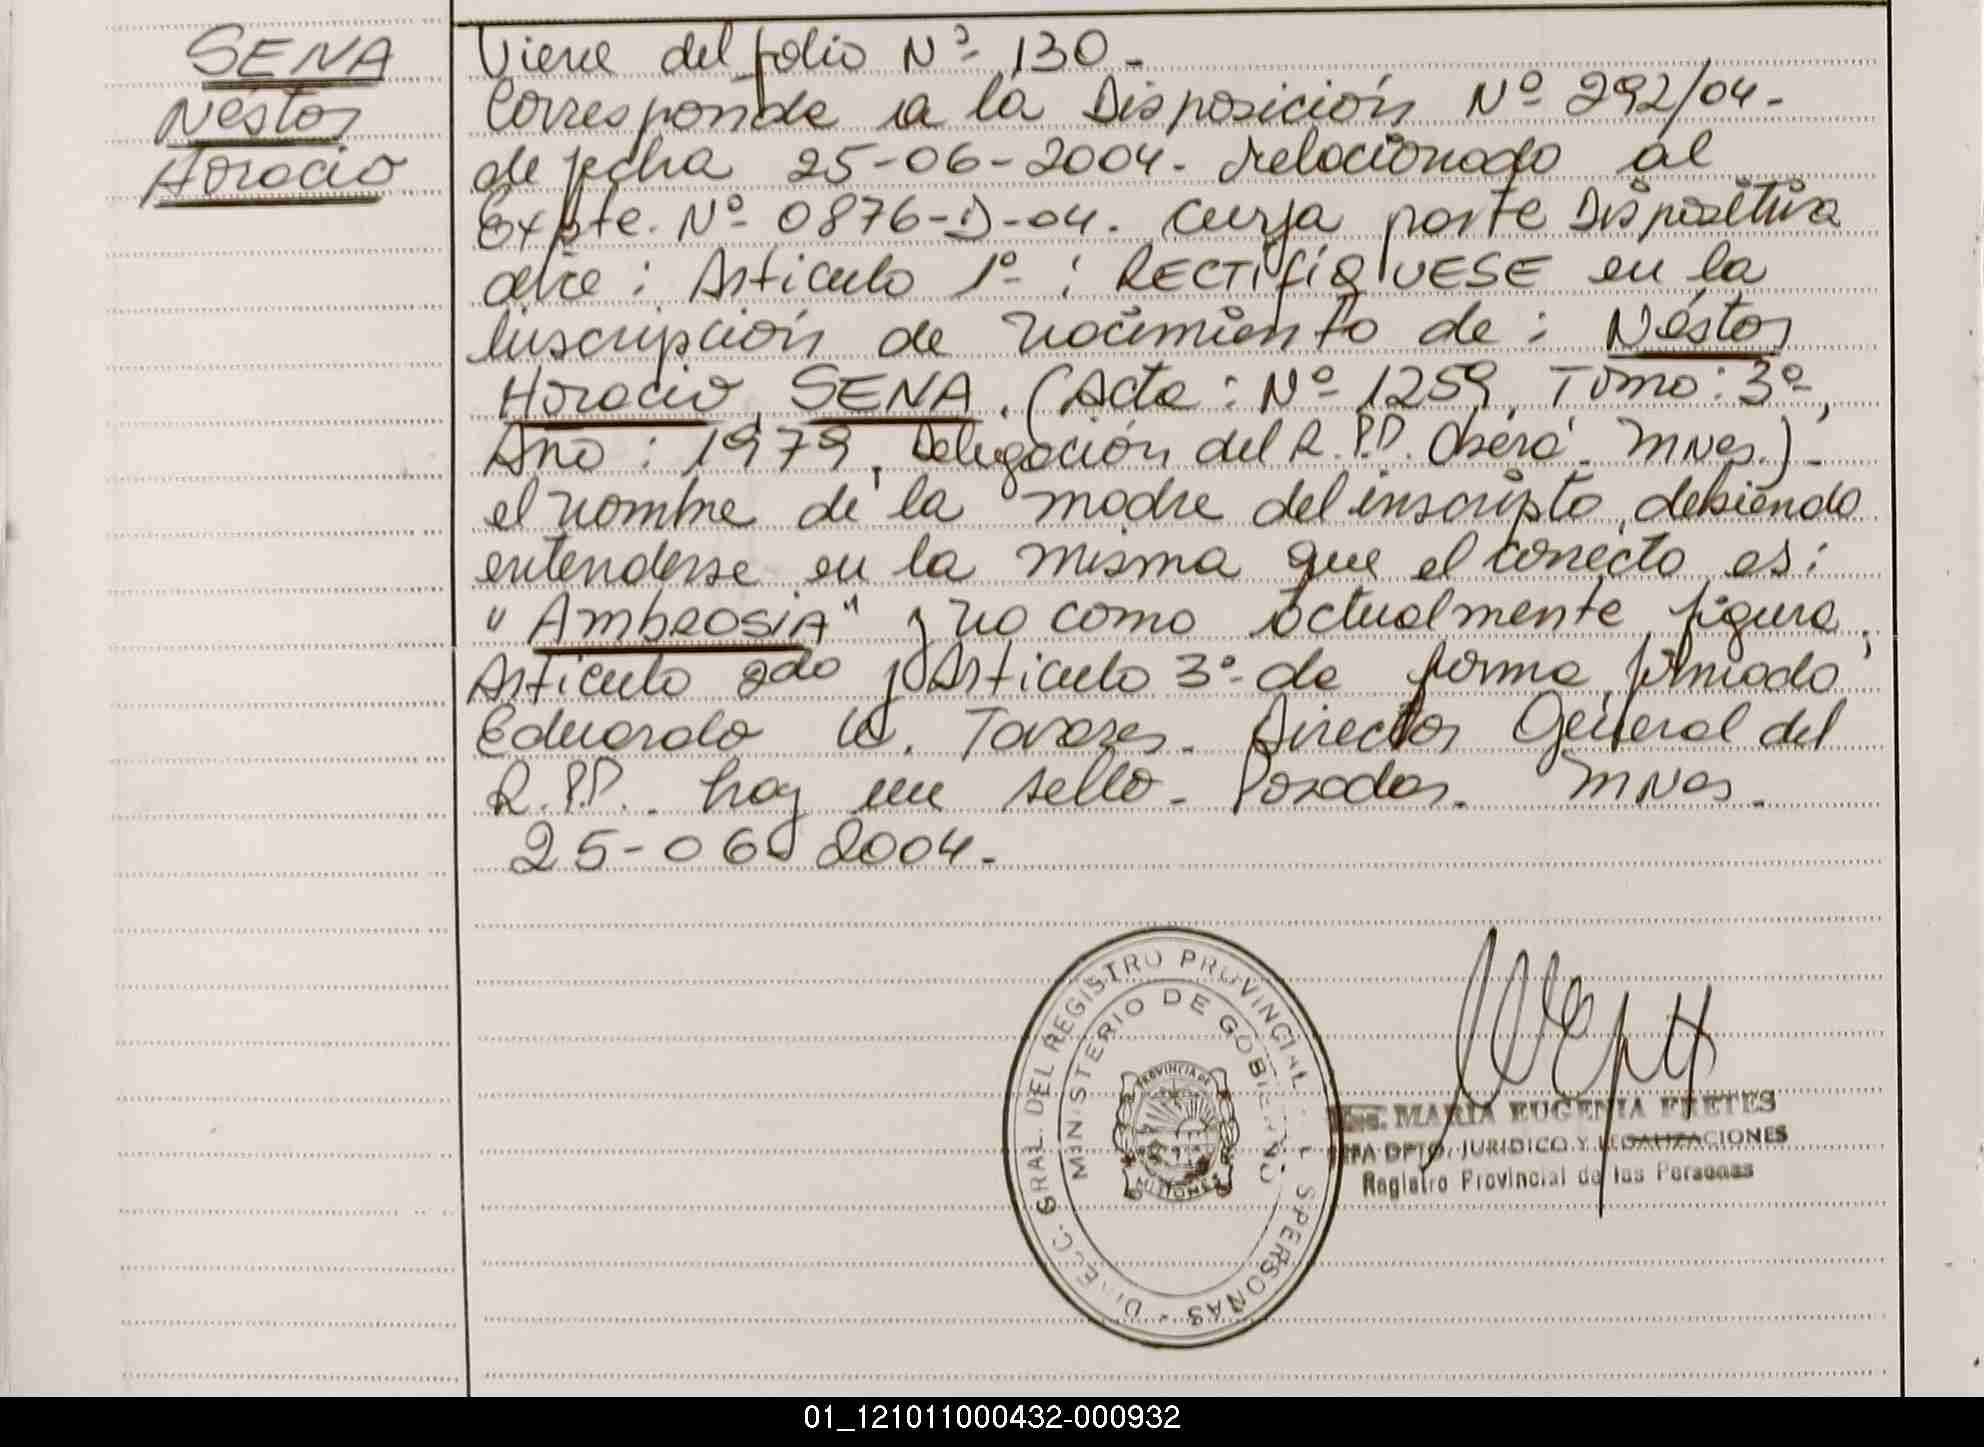 SENA
Néstor
Horacio
Viene del folio Nº 130-
Corresponde a la Disposición Nº 292/04-
de fecha 25-06-2004- relacionado al
Expte. Nº 0876-D-04. cuya parte Dispositiva
dice: Artículo 1º: RECTIFIQUESE en la
inscripción de nacimiento de: Néstor
Horacio SENA. (Acta: Nº 1259, Tomo: 3º,
Año: 1979, Delegación del R.P.P. Oberá- MNes.)-
el nombre de la madre del inscripto, debiendo
entenderse en la misma que el correcto es:
"AmbROSIA" y no como actualmente figura,
Artículo 2do y Artículo 3º de forma, firmado
Eduardo W. Tavares. Director General del
R.P.P. hay un sello- Posadas. MNes-
25-06-2004-
DIRECC. GRAL. DEL REGISTRO PROVINCIAL PERSONAS
MINISTERIO DE GOBIERNO
PROVINCIA DE
MISIONES
MARIA EUGENIA FRETES
DPTO. JURIDICO Y LEGALIZACIONES
Registro Provincial de las Personas
01_121011000432-000932